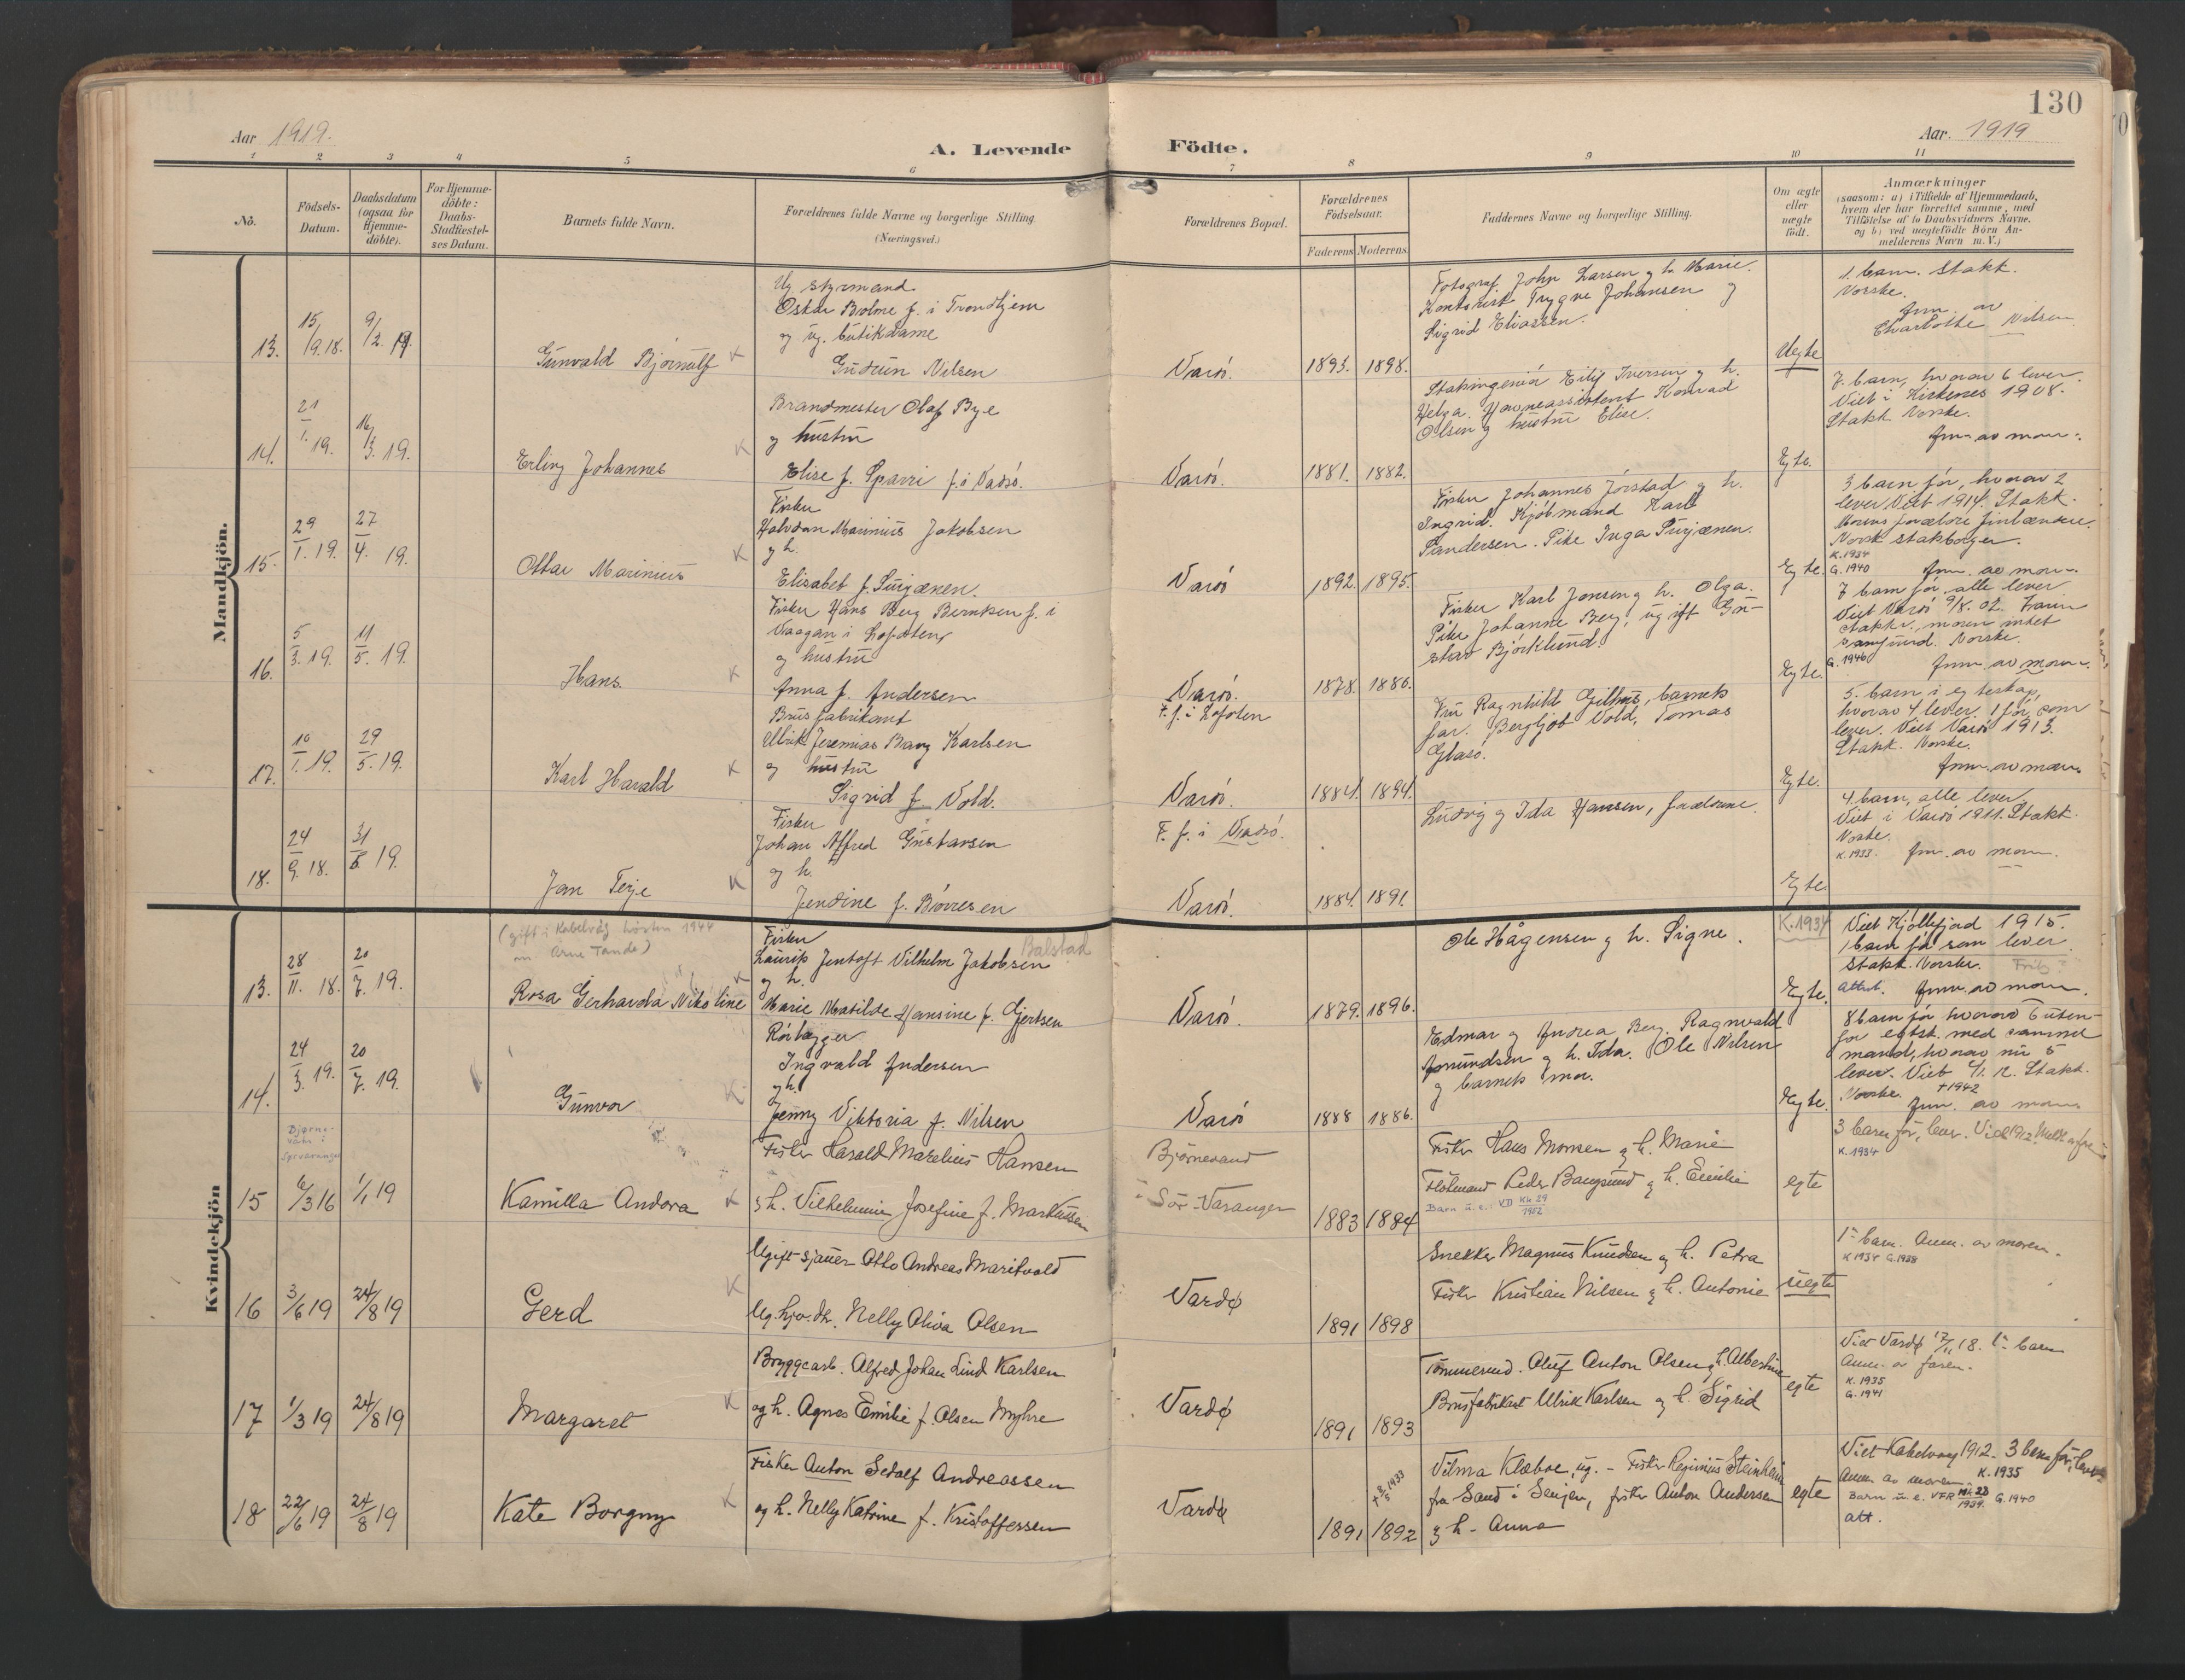 130
Aar 1919.
A. Levende Födte.
Aar. 1919
1 2 3 4 5 6 7 8 9 10 11
No.
Födsels-
Datum.
Daabsdatum
(ogsaa for
Hjemme-
döbte).
For Hjemme-
döbte:
Daabs-
Stadfæstel-
ses Datum.
Barnets fulde Navn.
Forældrenes fulde Navne og borgerlige Stilling
(Næringsvei.)
Forældrenes Bopæl.
Forældrenes
Födselsaar.
Faderens Moderens
Faddernes Navne og borgerlige Stilling.
Om ægte
eller
uægte
födt.
Anmærkninger
(saasom: a) i Tilfælde af Hjemmedaab,
hvem der har forrettet samme, med
Tilföielse af to Daabsvidners Navne.
og b) ved uægtefödte Börn An-
melderens Navn m. V.)
Mandkjön.
13.
15/9.18.
9/2.19.
Gunvald Bjørnulf
Ug. styrmand
Oskar Bolme f. i Trondhjem
og ug. butikdame
Gudrun Nilsen
Vardö.
1893. 1898.
Fotograf John Larsen og h. Marie.
Kontorist Trygve Johansen og
Sigrid Eliassen.
Uegte
1. barn. Statk.
Norske.
Anm. av
Charlotte Nilsen
14.
21/1.19.
16/3.19.
Erling Johannes
Brandmester Olaf Bye
og hustru
Elise f. Sparri f. i Vadsö.
Vardö.
1881. 1882.
Statsingeniör Eilif Iversen og h.
Helga. Havneassistent Konrad
Olsen og hustru Elise.
Egte.
7. barn, hvorav 6 lever.
Viet i Kirkenes 1908.
Statk. Norske.
Anm. av mor.
15.
29/1.19.
27/4.19.
Ottar Marinius
Fisker
Halvdan Marinius Jakobsen
og h.
Elisabet f. Surjænen.
Vardö
1892. 1895.
Fisker Johannes Jörstad og h.
Ingrid. Kjöbmand Karl
Sandersen. Pike Inga Surjænen.
Egte.
3 barn før, hvorav 2
lever. Viet 1914. Statk.
Morens forældre finlændere.
Norsk statsborger.
K. 1934
G. 1940
Anm. av mor.
16.
5/3.19.
11/5.19.
Hans
Fisker Hans Berg Berntsen f. i
Vaagan i Lofoten
og hustru
Anna f. Andersen
Vardö.
F. f. i Lofoten
1878. 1886.
Fisker Karl Jensen og h. Olga.
Pike Johanne Berg, ugift Gu-
stav Björklund.
Egte.
7 barn før, alle lever
Viet Vardö 9/8.02. Faren
statskr., moren intet
samfund. Norske.
G. 1946
Anm. av moren.
17.
10/1.19.
29/5.19.
Karl Harald
Brusfabrikant
Ulrik Jeremias Bang Karlsen
og hustru
Sigrid f. Vold.
Vardö.
F. f. i Vadsö.
1884. 1894.
Fru Ragnhild Gilhus, barnets
far. Bergljot Vold, Tomas
Glasö.
Egte.
5. barn i egteskap,
hvorav 4 lever. 1 før, som
lever. Viet Vardö 1913.
Statk. Norske.
Anm. av mor.
18.
24/9.18.
31/5.19.
Jan Terje
Fisker
Johan Alfred Gustavsen
og h.
Jendine f. Börresen
Vardö.
1884. 1891.
Ludvig og Ida Hansen, forældrene.
Egte.
4. barn, alle lever
Viet i Vardö 1911. Statk.
Norske.
K. 1933. Anm. av mor.
Kvindekjön
13.
28/11.18.
20/7.19.
(gift i Kabelvåg hösten 1944
m. Arne Tande)
Rosa Gerharda Nikoline
Fisker Balstad
Laurits Jentoft Vilhelm Jakobsen
og h.
Marie Matilde Hansine f. Gjertsen
Vardö.
1879. 1896.
Ole Hågensen og h. Signe.
K. 1934
Egte.
Viet Kjöllefjord 1915.
1 barn før som lever
Statk. Norske.
Attest. Anm. av mor.
14.
24/3.19.
20/7.19.
Gunvor
Rörlægger
Ingvald Andersen
og h.
Jenny Viktoria f. Nilsen
Vardö
1888 1886.
Edmar og Andrea Berg. Ragnvald
Amundsen og h. Ida. Ole Nilsen
og barnets mor.
Egte.
8 barn før hvorav 6 uten-
for egtsk. med samme
mand, hvorav nu 5
lever. Viet 4/1.12. Statk.
Norske. +1942
Anm. av mor.
15
6/3 16
1/1 19
Kamilla Andora
Fisker Harald Marelius Hansen
og h. Vilhelmine Josefine f. Markussen
Björnevand
i Sör-Varanger
1883 1884
Fisker Hans Monsen og h. Marie
Flötmand Peder Bangsund og h. Emilie
Barn u.e.: VD Kk 29 1952
egte
3 barn før, lever. Viet 1912.
K. 1934
16
3/6 19
24/8 19
Gerd
Ugift sjauer Otto Andreas Maritvold
Ug. hjv. dr. Nelly Oliva Olsen
Vardø
1891 1898
Snekker Magnus Knudsen og h. Petra
Fisker Kristian Nilsen og h. Antonie
uegte
1ste barn. Anm. av moren.
K 1934 G. 1938
17
1/3 19
24/8 19
Margaret
Bryggearb. Alfred Johan Lind Karlsen
og h. Agnes Emilie f. Olsen Myhre
Vardø
1891 1893
Tömmermd. Oluf Anton Olsen og h. Albertine
Brusfabrikant Ulrik Karlsen og h. Sigrid
egte
Viet Vardø 17/11 18. 1ste barn
Anm. av faren.
K. 1935
G. 1941
18
22/6 19
24/8 19
Kate Borgny
Fisker Anton Sedolf Andreassen
og h. Nelly Katrine f. Kristoffersen
Vardø
+ 8/5 1933
1891 1892
Vilma Klæboe, ug. - Fisker Reginius Steinheim
fra Sand i Senjen, fisker Anton Andersen
og h. Anna
egte
Viet Kabelvaag 1912. 3 barn før, lever
Anm av moren. K. 1935
Barn u. e. VFR Nk. 23 1939. G. 1940
att.